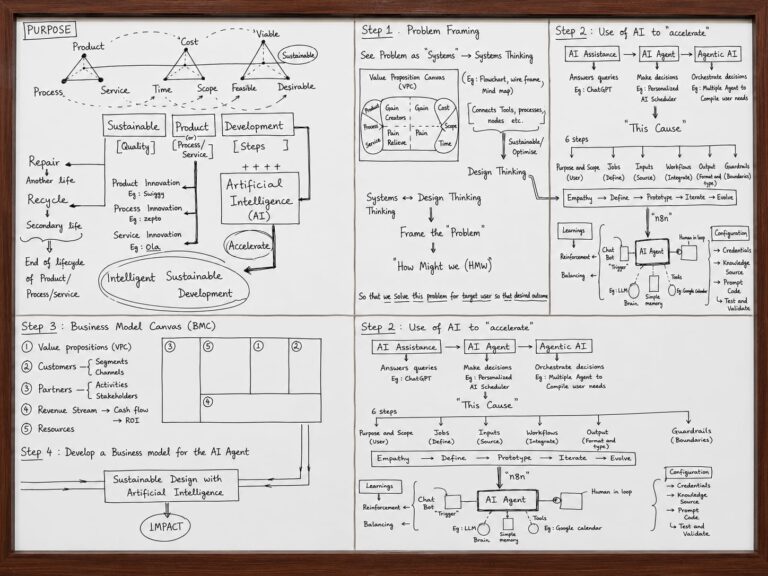 PURPOSE
Product
Cost
Viable
Sustainable
Process
Service
Time
Scope
Feasible
Desirable
Sustainable
Product
(or)
Process/
Service
Development
[Quality]
[Steps]
++++
Repair
Another life
Recycle
Secondary life
End of lifecycle
of Product/
Process/Service.
Product Innovation
Eg : Swiggy
Process Innovation
Eg : zepto
Service Innovation
Eg : Ola
Artificial
Intelligence
(AI)
Accelerate
Intelligent Sustainable
Development
Step 1 . Problem Framing
See Problem as "Systems" → Systems Thinking
Value Proposition Canvas
(VPC)
Product
Process
Service
Gain
Creators
Gain
Pain
Relieve
Pain
Cost
Scope
Time
(Eg : Flowchart, wire frame,
Mind map)
[Connects Tools, processes,
nodes etc.]
Sustainable/
Optimise
Design Thinking
Systems ↔ Design Thinking
Thinking
Frame the "Problem"
"How Might we (HMW)
So that we Solve this problem for target user so that desired outcome
Step 2 : Use of AI to "accelerate"
AI Assistance → AI Agent → Agentic AI
Answers queries
Eg : ChatGPT
Make decisions
Eg : Personalized
AI Scheduler
Orchestrate decisions
Eg : Multiple Agent to
Compile user needs
"This Cause"
6 steps
Purpose and Scope
(User)
Jobs
(Define)
Inputs
(Source)
Workflows
(Integrate)
Output
(Format and
type)
Guardrails
(Boundaries)
Empathy → Define → Prototype → Iterate → Evolve
"n8n"
Learnings
Reinforcement
Balancing
Chat
Bot
"Trigger"
AI Agent
Human in loop
Eg : LLM
Brain
Simple
memory
Tools
Eg : Google calendar
Configuration
→ Credentials
→ Knowledge
Source
→ Prompt
Code
→ Test and
Validate
Step 3 : Business Model Canvas (BMC)
① Value propositions (VPC)
② Customers → Segments
→ Channels
③ Partners → Activities
Stakeholders
④ Revenue Stream → Cash flow
→ ROI
⑤ Resources
③
⑤
①
②
④
Step 4 : Develop a Business model for the AI Agent
Sustainable Design with
Artificial Intelligence
IMPACT
Step 2 : Use of AI to "accelerate"
AI Assistance → AI Agent → Agentic AI
Answers queries
Eg : ChatGPT
Make decisions
Eg : Personalized
AI Scheduler
Orchestrate decisions
Eg : Multiple Agent to
Compile user needs
"This Cause"
6 steps
Purpose and Scope
(User)
Jobs
(Define)
Inputs
(Source)
Workflows
(Integrate)
Output
(Format and
type)
Guardrails
(Boundaries)
Empathy → Define → Prototype → Iterate → Evolve
"n8n"
Learnings
Reinforcement
Balancing
Chat
Bot
"Trigger"
AI Agent
Human in loop
Eg : LLM
Brain
Simple
memory
Tools
Eg : Google calendar
Configuration
→ Credentials
→ Knowledge
Source
→ Prompt
Code
→ Test and
Validate